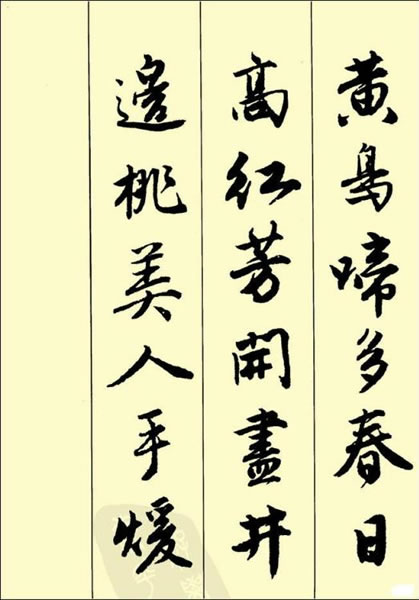 黄鸟啼多春日
高红芳開盡井
邉桃美人手煖